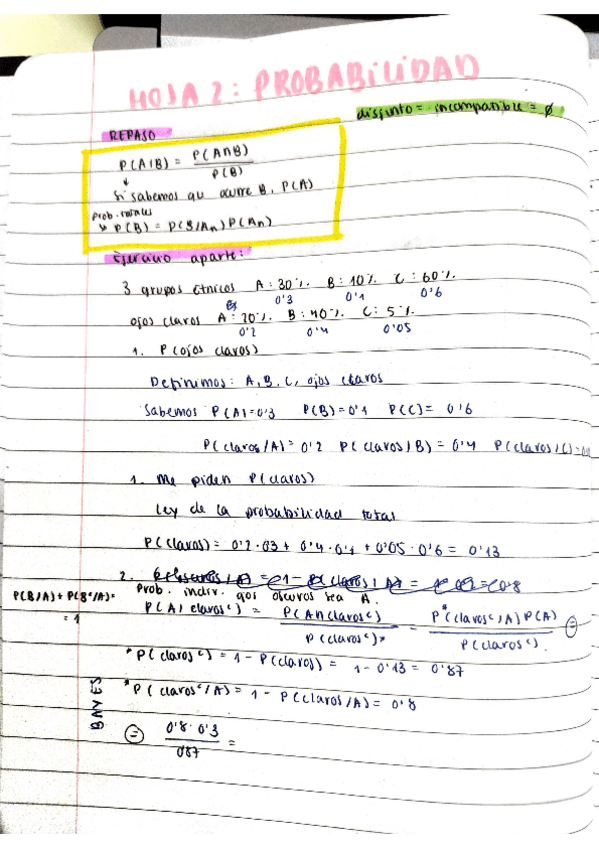 HOJA 2: PROBABILIDAD
disjunto = incompatible = ∅
REPASO
P(A|B) = P(A∩B) / P(B)
↓
Si sabemos qu ocurre B, P(A)
prob. totales
↳ P(B) = P(B/An) P(An)
Ejercicio aparte:
3 grupos étnicos A: 30% B: 10% C: 60%
0'3 0'1 0'6
ojos claros A: 20% B: 40% C: 5%
0'2 0'4 0'05
1. P(ojos claros)
Definimos: A, B, C, ojos claros
Sabemos P(A)=0'3 P(B)=0'1 P(C)= 0'6
P(claros/A)= 0'2 P(claros/B) = 0'4 P(claros/C)=
1. Me piden P(claros)
Ley de la probabilidad total
P(claros)= 0'2·03+ 0'4·0'1 +0'05·0'6= 0'13
2.
Prob. indiv. ojos oscuros sea A.
P(B/A)+P(Bᶜ/A)=
= 1
P(A/clarosᶜ) = P(A∩clarosᶜ) / P(clarosᶜ)* = P*(clarosᶜ/A)P(A) / P(clarosᶜ). =
*P(clarosᶜ) = 1 - P(claros) = 1 - 0'13 = 0'87
*P(clarosᶜ/A) = 1 - P(claros/A)= 0'8
BAYES
= 0'8·0'3 / 087 =